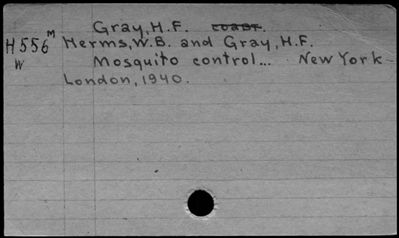 Gray, H.F. coast.
H556 M Herms, W.B. and Gray, H.F.
W Mosquito control... New York -
London, 1940.